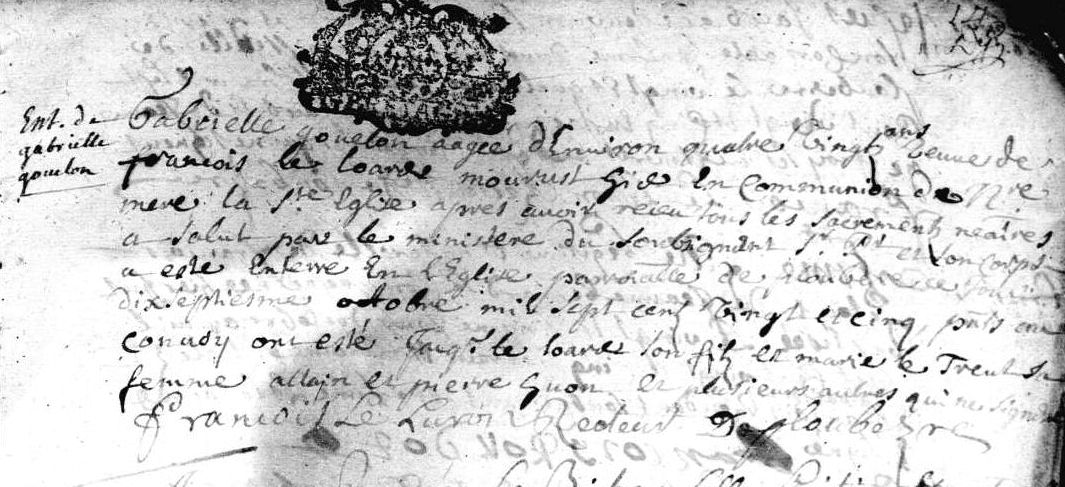 Ent. de
gabrielle
gouelon
Gabrielle gouelon aagee d'Environ quatre Vingts ans Veuve de
francois le loarer mourust hier En Communion de Nre
mere la Ste Eglise apres avoir receu tous les sacrements neaires
a salut par le ministere du soubsignant et son corps
a esté Enterré En l'Eglise parroialle de ploubezre
dixseptiesme octobre mil sept cent Vingt et cinq, pnts au
convoy ont esté Jacq. le loarer son fils et marie le Treut sa
femme allain et pierre huon et plusieurs autres qui ne signent
Francois Le Recteur De ploubezre